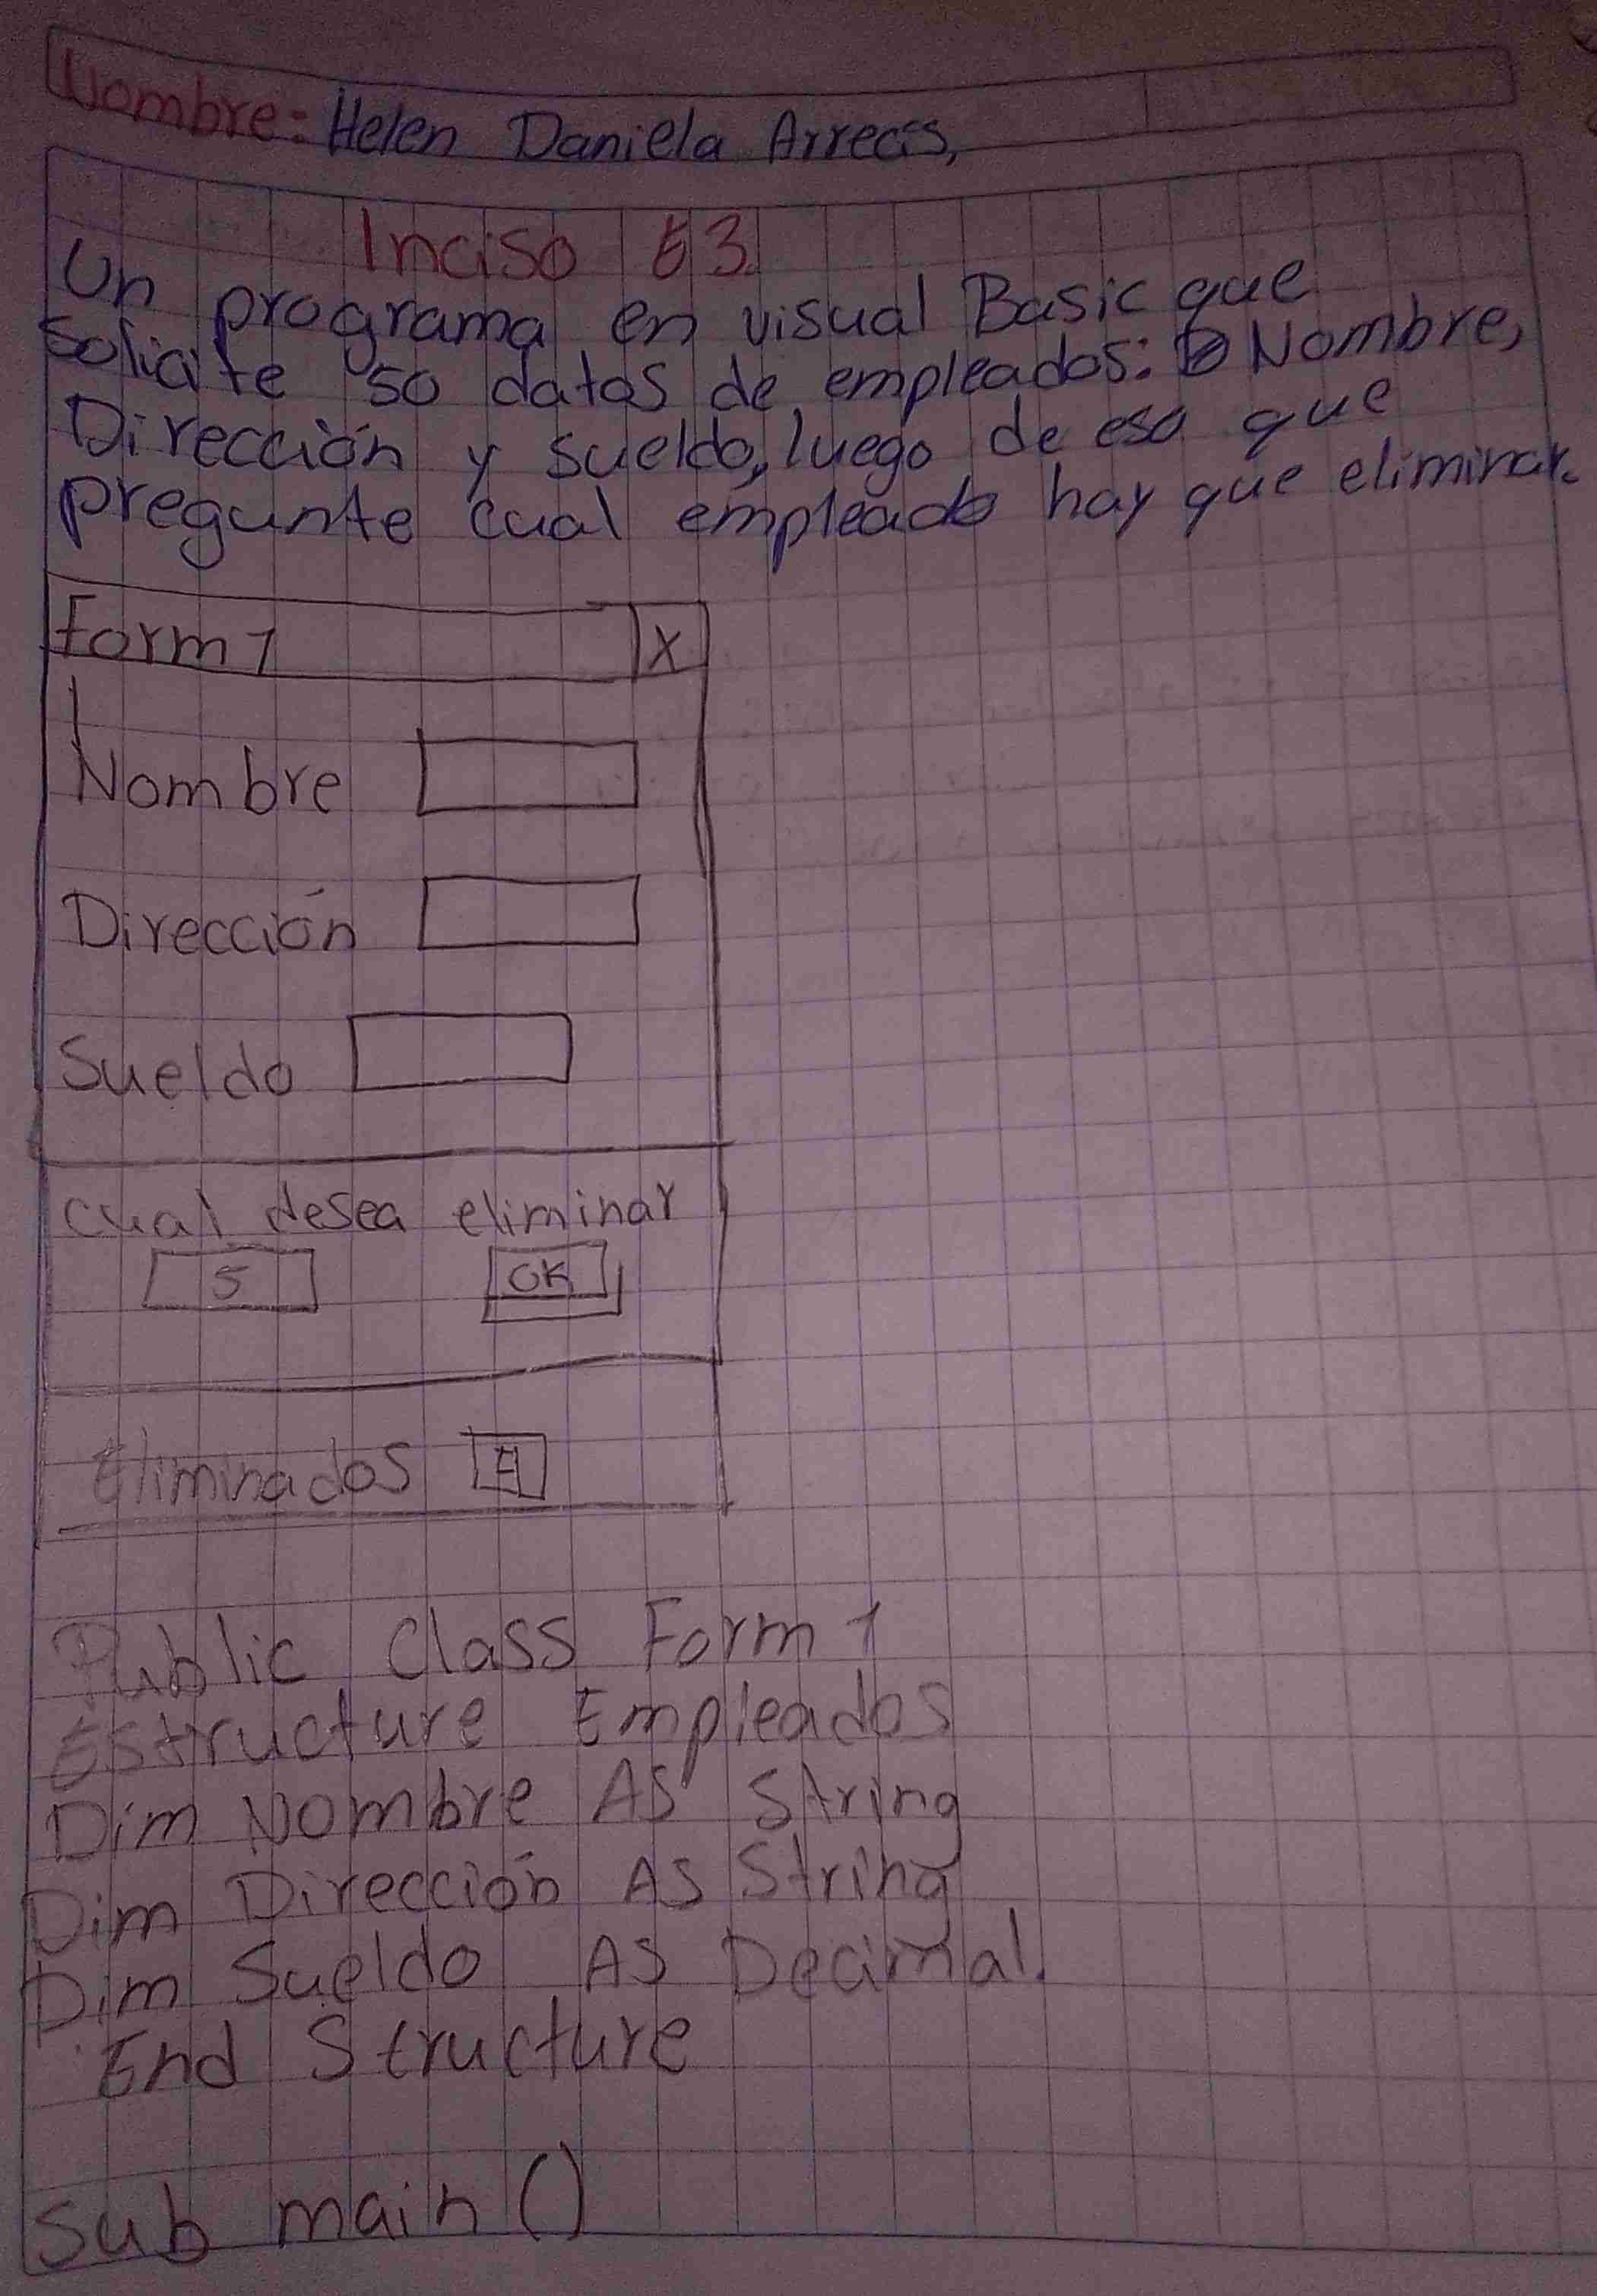 Nombre: Helen Daniela Arrecis,
Inciso 3.
Un programa en visual Basic que
solicite 50 datos de empleados: Nombre,
Dirección y sueldo, luego de eso que
pregunte cual empleado hay que eliminar.
Form 1 X
Nombre
Dirección
Sueldo
cual desea eliminar
5 OK
Eliminados
Public Class Form 1
Estructure Empleados
Dim Nombre As String
Dim Dirección As String
Dim Sueldo As Decimal.
End Structure
Sub main ()